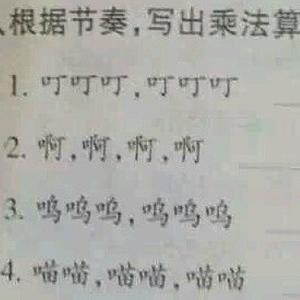 、根据节奏,写出乘法算
1. 叮叮叮,叮叮叮
2. 啊,啊,啊,啊
3. 呜呜呜,呜呜呜
4. 喵喵,喵喵,喵喵